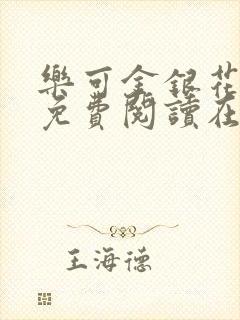 樂可金銀花
免費閱讀在
王海德